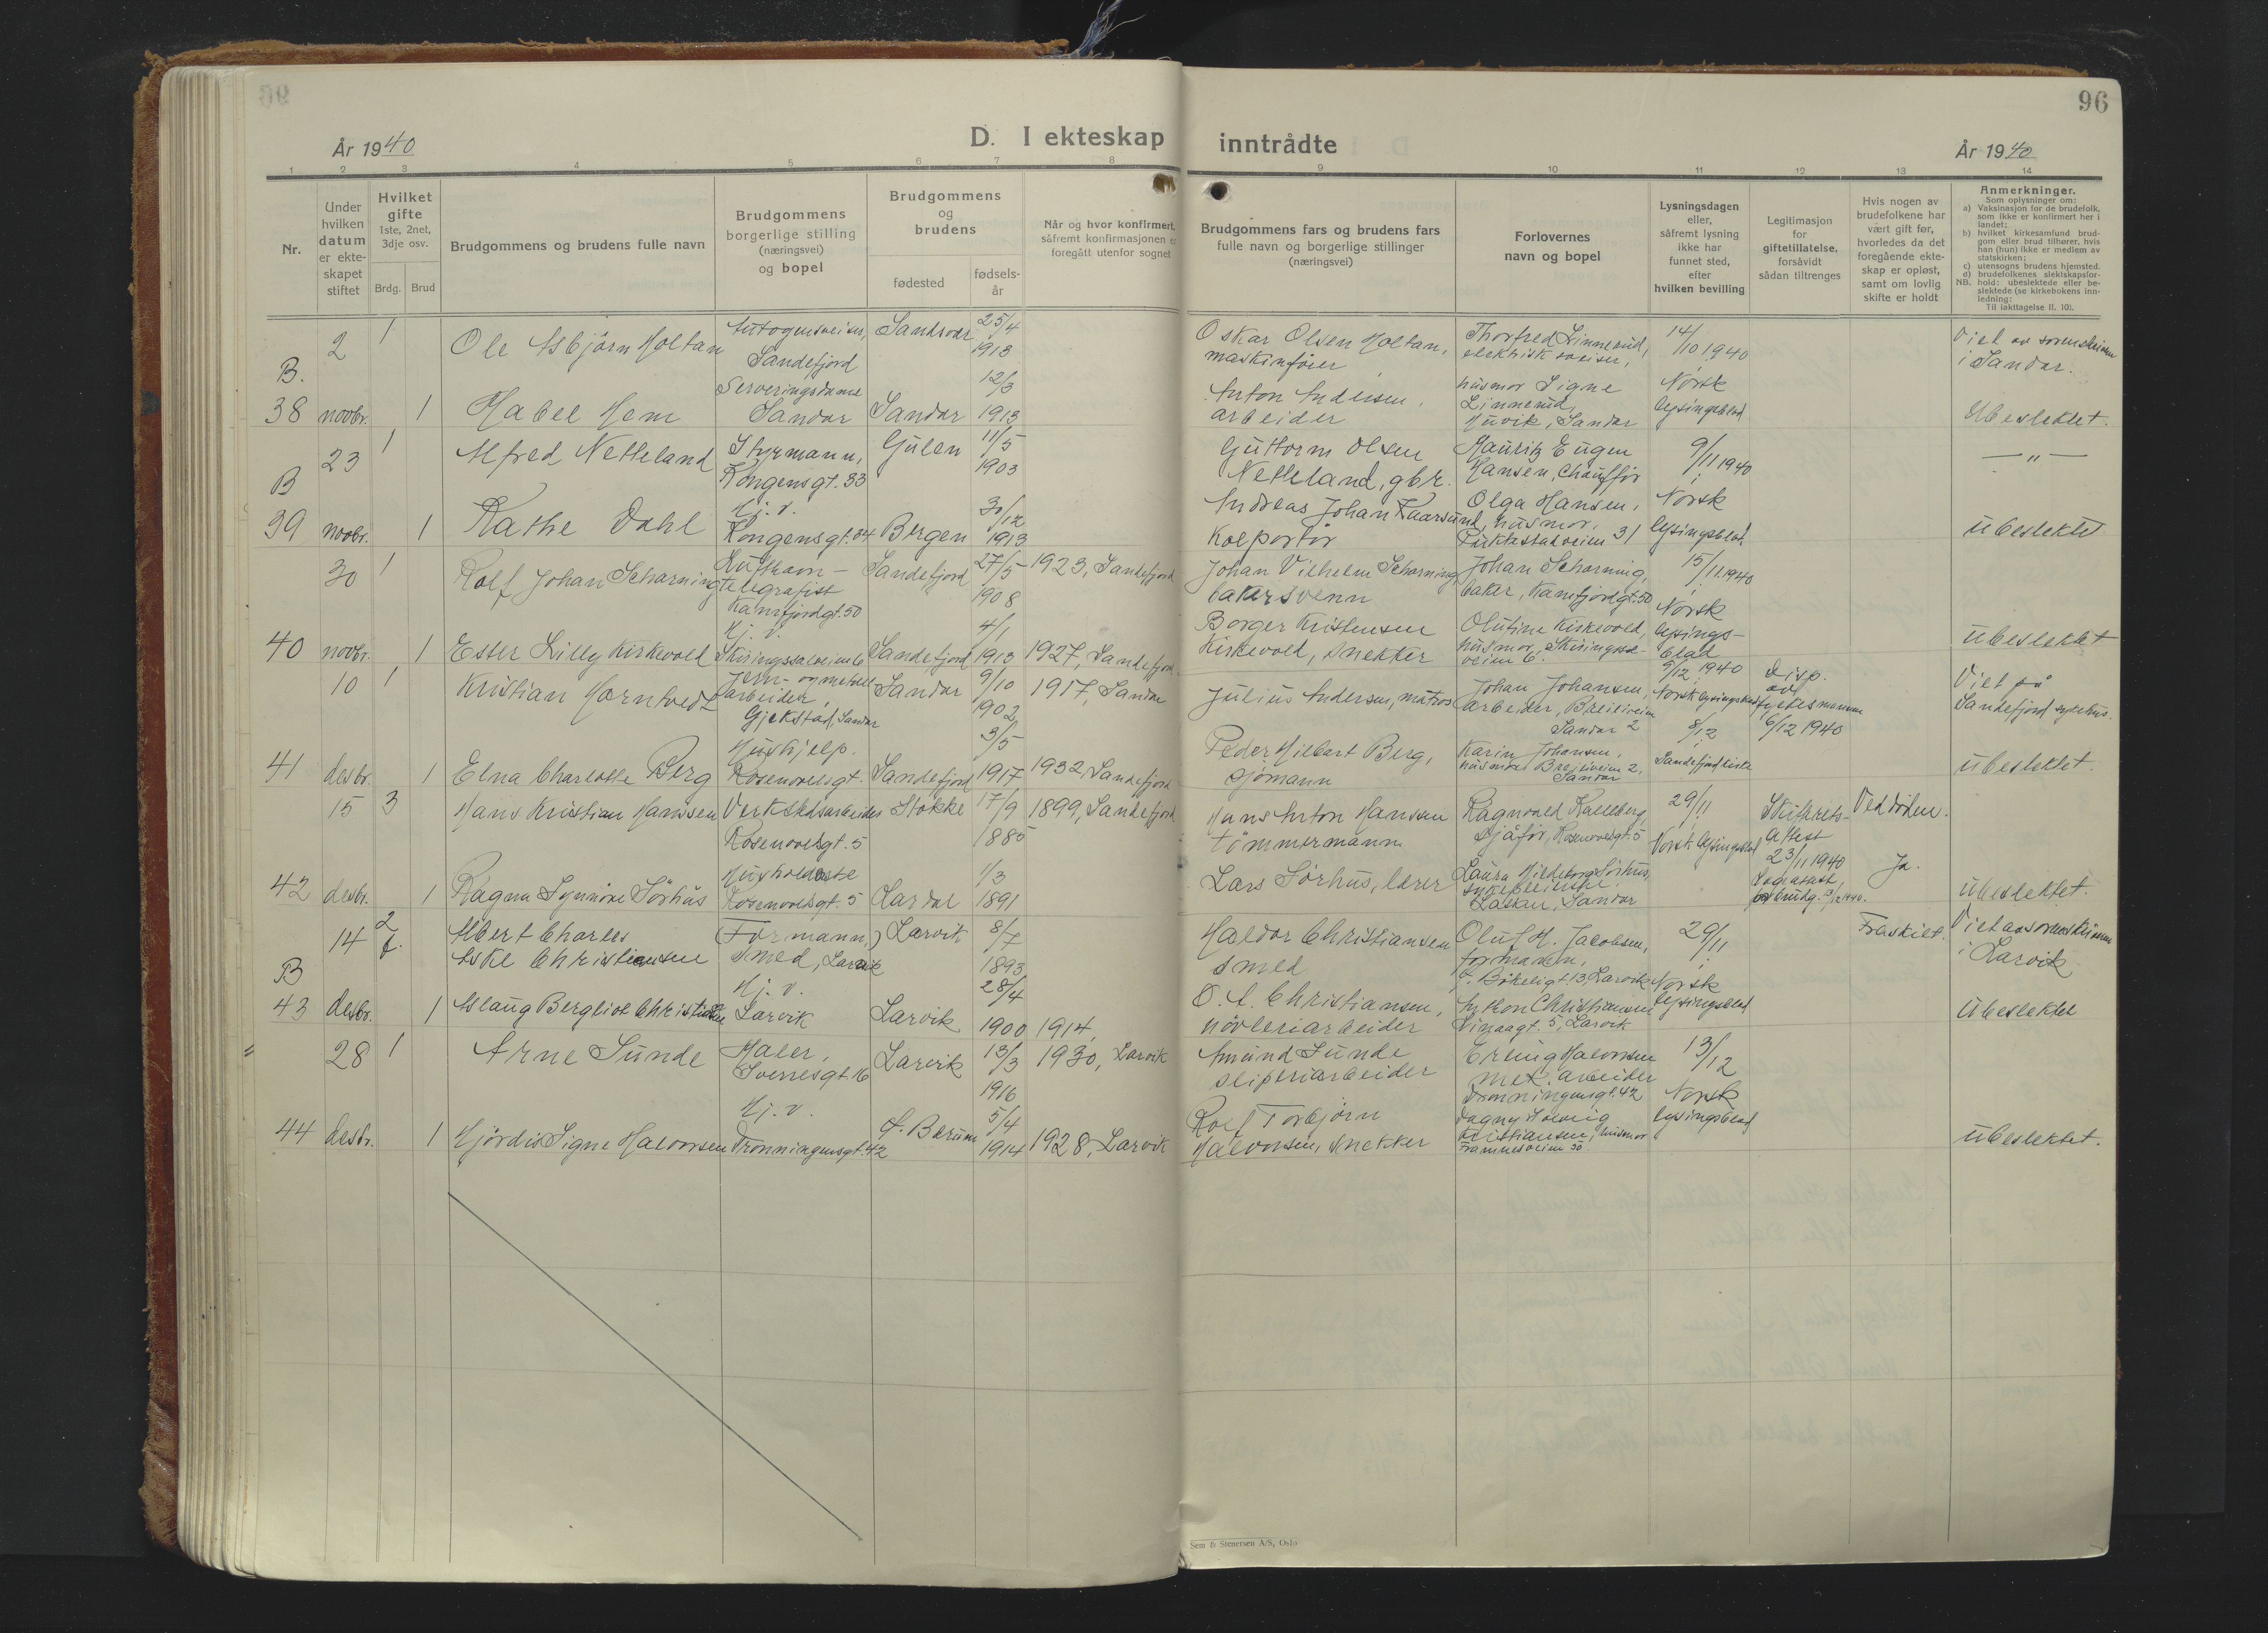 96
År 1940
D. I ekteskap inntrådte
År 1940
1 2 3 4 5 6 7 8 9 10 11 12 13 14
Nr.
Under
hvilken
datum
er ekte-
skapet
stiftet
Hvilket
gifte
1ste, 2net,
3dje osv.
Brdg. Brud
Brudgommens og brudens fulle navn
Brudgommens
borgerlige stilling
(næringsvei)
og bopel
Brudgommens
og
brudens
fødested
fødsels-
år
Når og hvor konfirmert,
såfremt konfirmasjonen er
foregått utenfor sognet
Brudgommens fars og brudens fars
fulle navn og borgerlige stillinger
(næringsvei)
Forlovernes
navn og bopel
Lysningsdagen
eller,
såfremt lysning
ikke har
funnet sted,
efter
hvilken bevilling
Legitimasjon
for
giftetillatelse,
forsåvidt
sådan tiltrenges
Hvis nogen av
brudefolkene har
vært gift før,
hvorledes da det
foregående ekte-
skap er opløst,
samt om lovlig
skifte er holdt
Anmerkninger.
Som oplysninger om:
a) Vaksinasjon for de brudefolk,
som ikke er konfirmert her i
landet;
b) hvilket kirkesamfund brud-
gom eller brud tilhører, hvis
han (hun) ikke er medlem av
statskirken;
c) utensogns brudens hjemsted.
d) brudefolkenes slektskapsfor-
hold: ubeslektede eller be-
slektede (se kirkebokens inn-
ledning:
NB.
Til iakttagelse II. 10).
B.
38
2
novbr.
1
Ole Asbjörn Holtan
Autogensveiser,
Sandefjord
25/4
1913
1
Mabel Hem
Serveringsdame
Sandar
Sandar
12/3
1913
Oskar Olsen Holtan,
maskinfører
Anton Andersen,
arbeider
Thorfred Linnerud,
elektrisk sveiser,
husmor Signe
Linnerud,
Huvik, Sandar
14/10 1940
Norsk
lysingsblad
Viet av sorenskriveren
i Sandar.
Ubeslektet.
B
39
23
novbr.
1
Alfred Netteland
Styrmann,
Kongensgt. 33
Gulen
11/5
1903
1
Käthe Dahl
Hj. v.
Kongensgt. 34
Bergen
3/12
1913
Guttorm Olsen
Netteland, gbr.
Andreas Johan Kaarsund,
Kolportör
Mauritz Eugen
Hansen, Chauffør
Olga Hansen,
husmor,
9/11 1940
Norsk
lysingsblad
— " —
Ubeslektet
40
30
novbr.
1
Rolf Johan Scharning
telegrafist
Kamfjordgt. 50
Sandefjord
27/5
1908
1923, Sandefjord
1
Ester Lilly Kirkevold
Hj. v.
Skiringssalveien 6
Sandefjord
4/1
1913
1927, Sandefjord
Johan Vilhelm Scharning,
bakersvenn
Borger Kristensen
Kirkevold, snekker
Johan Scharning,
baker, Kamfjordgt. 50
Olutine Kirkevold,
husmor, Skiringssal-
veien 6.
15/11 1940
Norsk
lysings-
blad
Ubeslektet
41
10
desbr.
1
Kristian Horntvedt
Jern- og metall-
arbeider,
Gjekstad, Sandar
Sandar
9/10
1902
1917, Sandar
1
Elna Charlotte Berg
Hushjelp.
Rosenvoldsgt.
Sandefjord
3/5
1917
1932, Sandefjord
Julius Andersen, matros
Peder Hilbert Berg,
sjömann
Johan Johansen,
arbeider, Breiliveien
Sandar 2
Karin Johansen,
husmor Breiliveien 2,
Sandar
9/12 1940
Norsk lysingsblad
8/12
Sandefjord kirke
Disp.
av
fylkesmannen
6/12 1940
Viet på
Sandefjord sykehus.
Ubeslektet.
42
15
desbr.
3
Hans Kristian Hanssen
Verkstedsarbeider
Rosenvoldsgt. 5
Stokke
17/9
1885
1899, Sandefjord
1
Ragna Synnöve Sörhus
Husholderske
Rosenvoldsgt. 5
Lardal
1/3
1891
Hans Anton Hansen
tömmermann
Lars Sörhus, lærer
Ragnvald Kalleberg,
sjåför, Rosenvoldsgt. 5
Laura Hildeborg Sörhus,
sykepleierske
Sandar
29/11
Norsk lysingsblad
Skifterets-
attest
23/11 1940
Ved döden.
Ja.
Ubeslektet.
B
43
14
desbr.
2
f.
Albert Charles
Askl Christiansen
(Formann)
smed, Larvik
Larvik
8/7
1893
1
Aslaug Bergliot Christiansen
Hj. v.
Larvik
Larvik
28/4
1900
1914,
Haldor Christiansen
smed
O. A. Christiansen,
hövleriarbeider
Oluf M. Jacobsen,
formann,
Bökeligt. 13, Larvik
Anthon Christiansen
Linaagt. 5, Larvik
29/11
Norsk
lysingsblad
Fraskilt.
Viet av sorenskriveren
i Larvik
Ubeslektet
44
28
desbr.
1
Arne Sunde
Maler,
Sverresgt 16
Larvik
13/3
1916
1930, Larvik
1
Hjördis Signe Halvorsen
Hj. v.
Dronningensgt. 42
Ö. Bærum
5/4
1914
1928, Larvik
Amund Sunde
sliperiarbeider
Rolf Torbjörn
Halvorsen, snekker
Erling Halvorsen
mek. arbeider
Dronningensgt. 42
Dagny Solveig
Kristiansen, husmor
Framnesveien 30.
13/12
Norsk
lysingsblad
Ubeslektet.
Sem & Stenersen A/S, Oslo